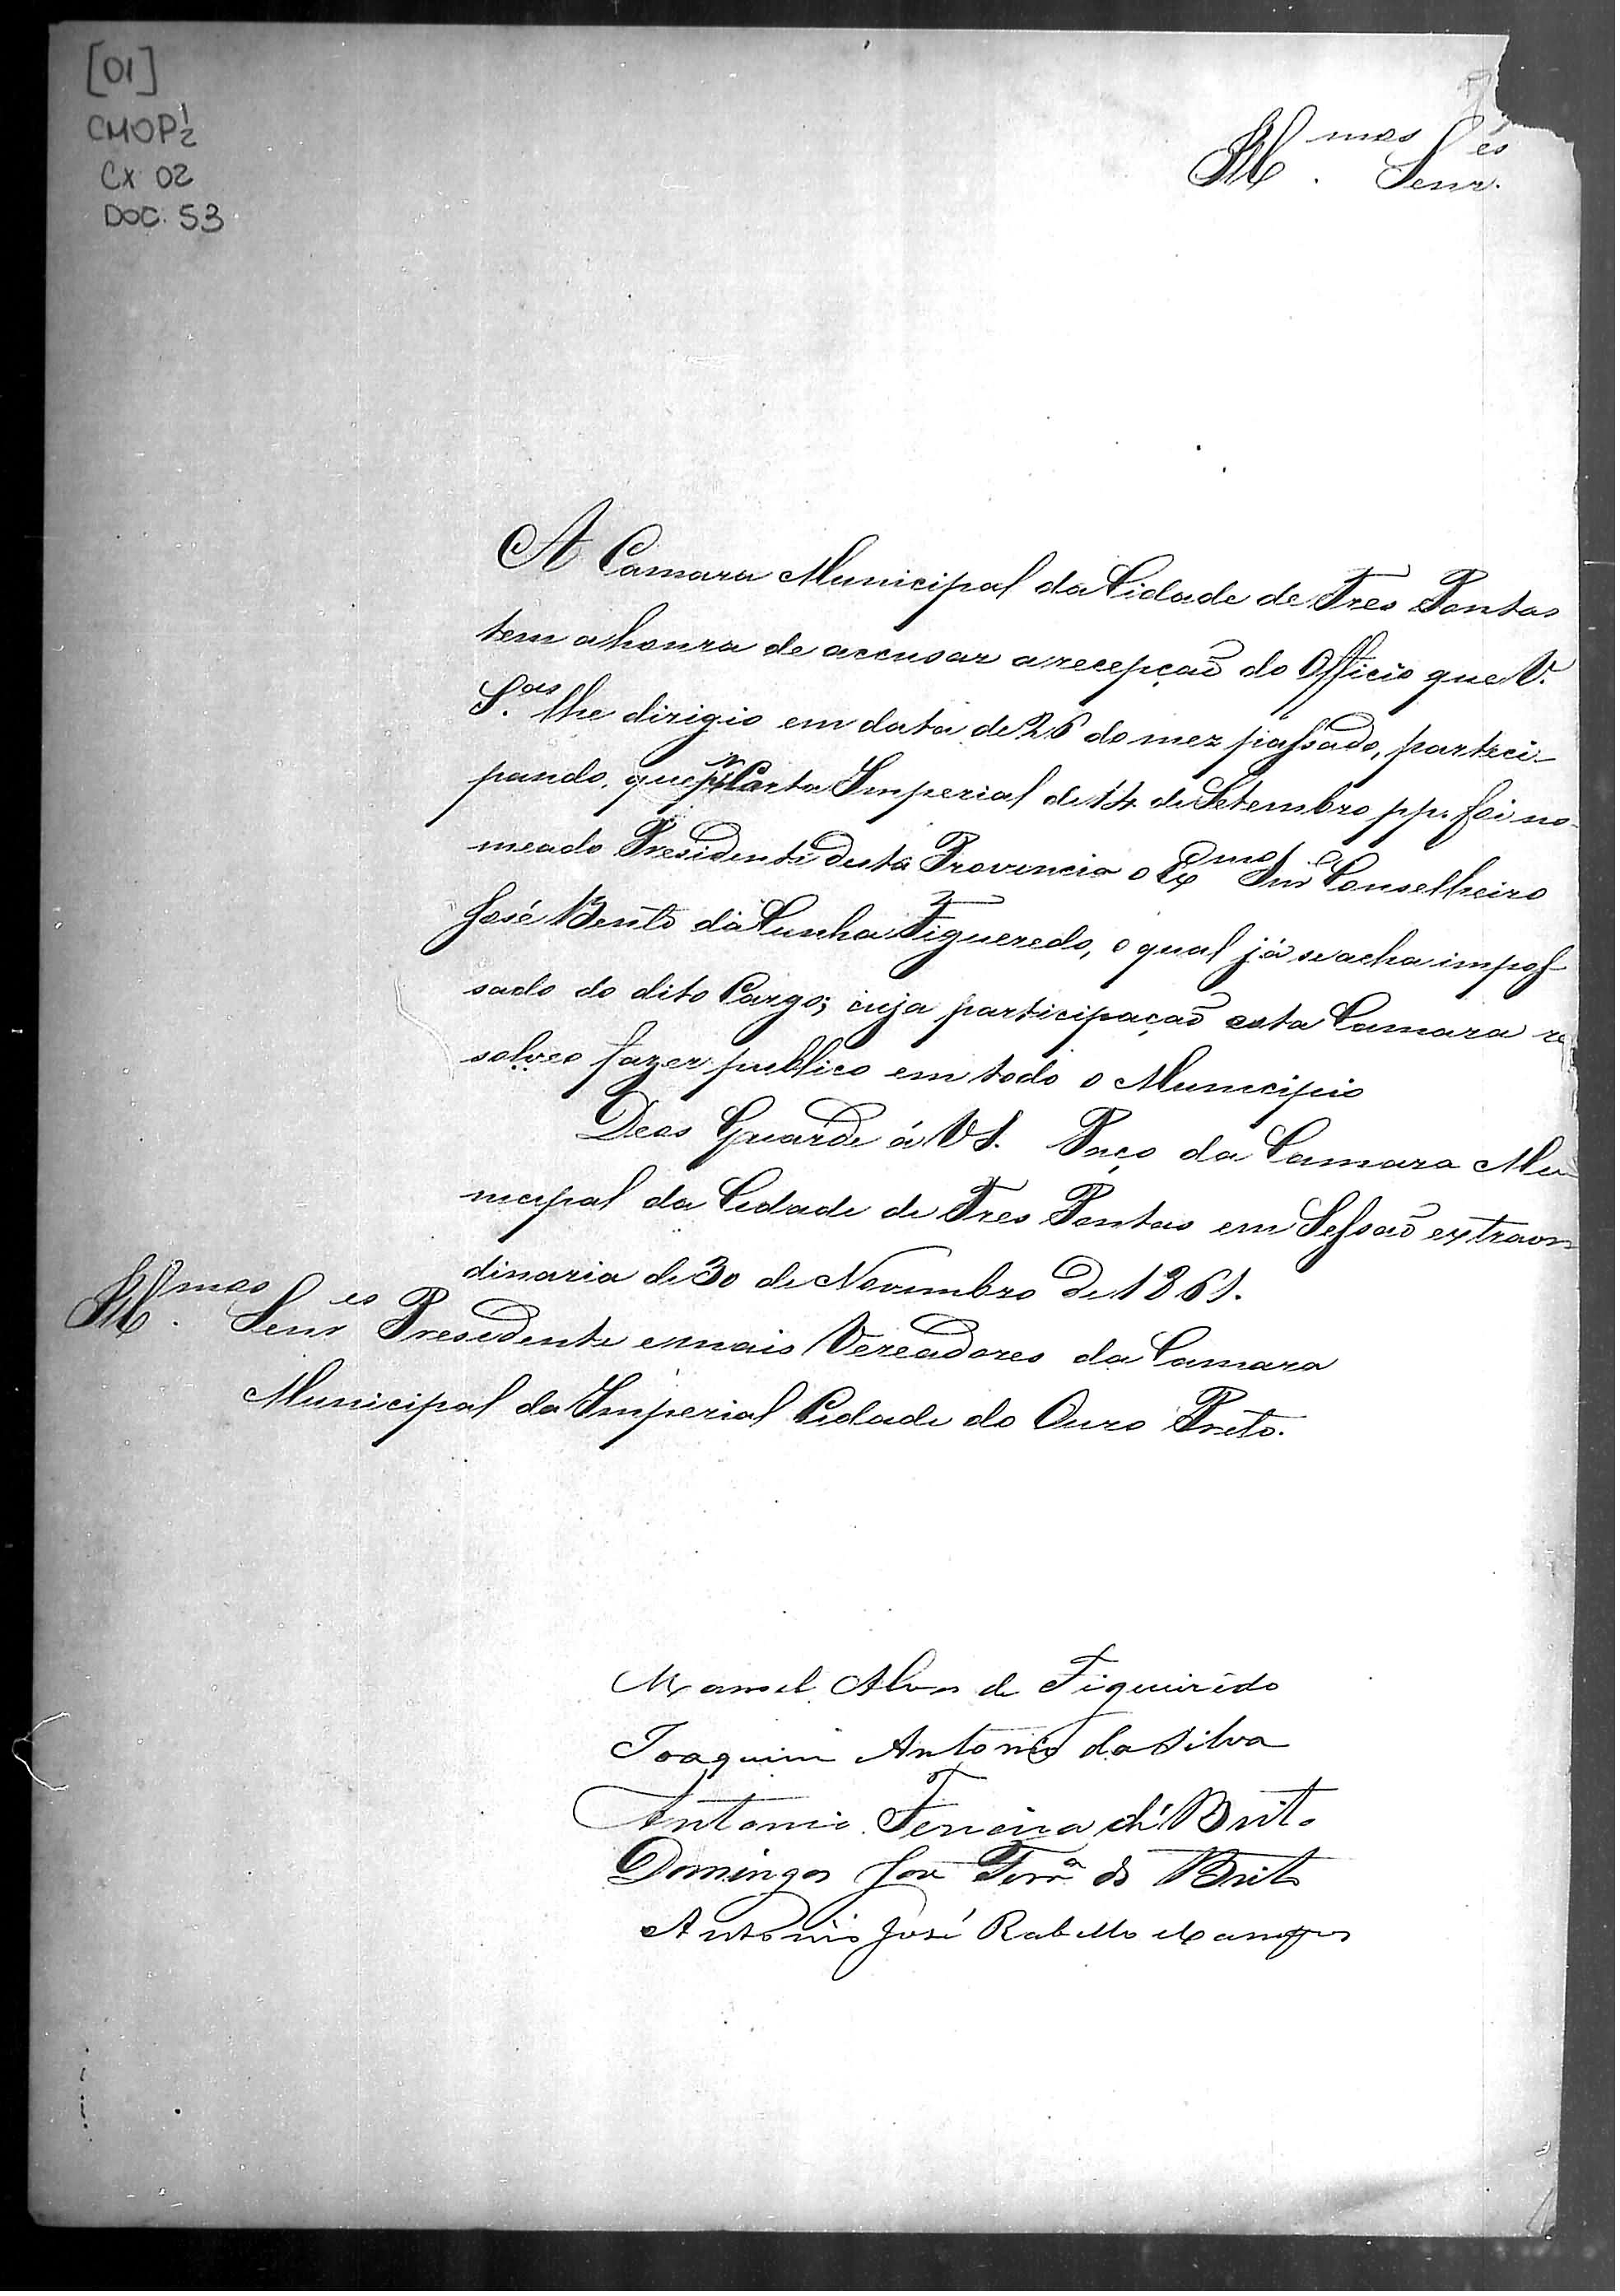 [01]
CMOP 1/2
CX 02
DOC. 53
Ill.mos Senr.es
A Camara Municipal da Cidade de Tres Pontas
tem a honra de accusar a recepçaõ do Officio que V.
S.as lhe dirigio em data de 26 do mez passado, partici-
pando, que pr Carta Imperial de 14 de Setembro pp. foi no-
meado Presidente desta Provincia o Exmo Snr Conselheiro
José Bento da Cunha Figueredo, o qual já se acha impos-
sado do dito Cargo; cuja participaçaõ esta Camara re
solveo fazer publico em todo o Municipio
Deos Guarde á VS. Paço da Camara Mu-
nicipal da Cidade de Tres Pontas em Sessaõ extraor
dinaria de 30 de Novembro de 1861.
Ill.mos Senres Presidente e mais Vereadores da Camara
Municipal da Imperial Cidade do Ouro Preto.
Manoel Alves de Figueirêdo
Joaquim Antonio da Silva
Antonio Ferreira de Brito
Domingos José Ferra de Brito
Antonio José Rabello Campos